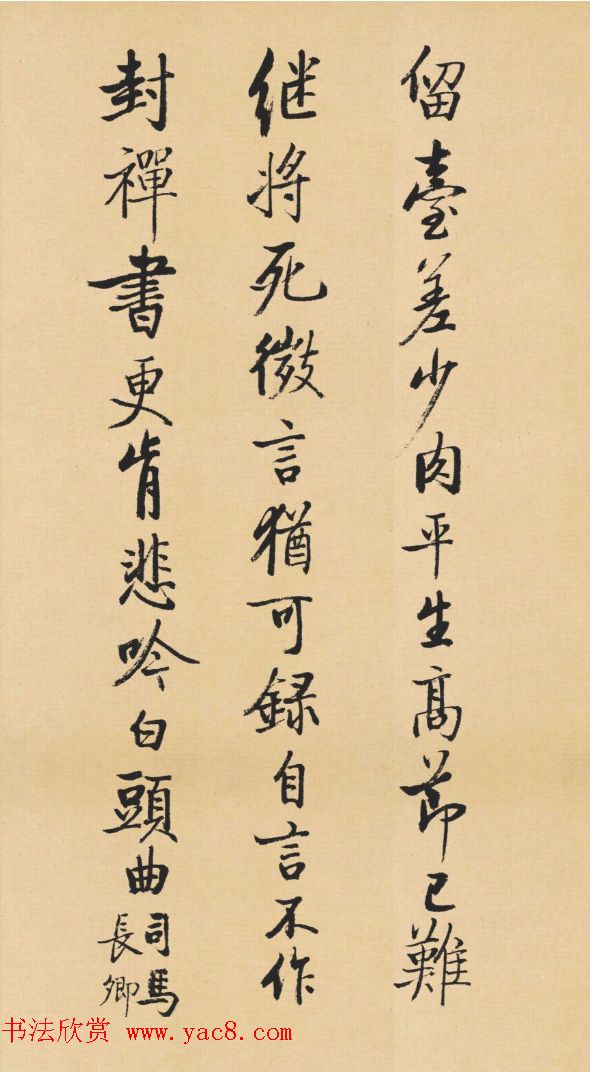 留臺差少肉平生高節已難
继将死微言猶可録自言不作
封禪書更肯悲吟白頭曲
司馬
長卿
书法欣赏 www.yac8.com